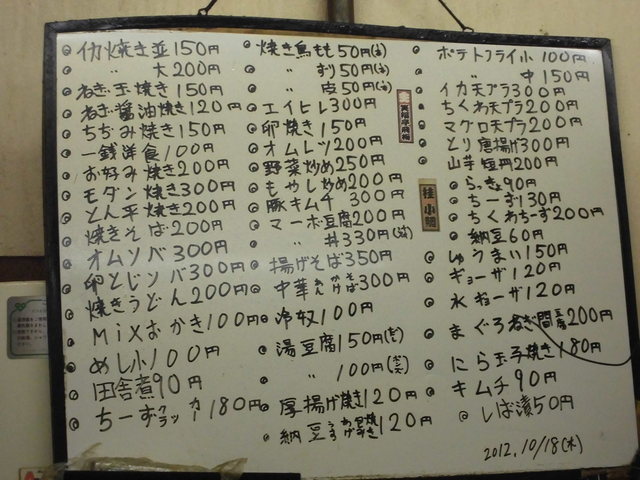 イカ焼き並150円
〃 大200円
ねぎ玉焼き150円
ねぎ醤油焼き120円
ちぢみ焼き150円
一銭洋食100円
お好み焼き200円
モダン焼き300円
とん平焼き200円
焼きそば200円
オムソバ300円
卵とじソバ300円
焼きうどん200円
Mixおかき100円
めし小100円
田舎煮90円
ちーずクラッカー180円
焼き鳥もも50円(本)
〃 ずり50円(本)
〃 皮50円(本)
エイヒレ300円
卵焼き150円
オムレツ200円
野菜炒め250円
もやし炒め200円
豚キムチ300円
マーボ豆腐200円
〃 丼330円
揚げそば350円
中華あんかけそば300円
冷奴100円
湯豆腐150円
〃 100円
厚揚げ焼き120円
納豆うすあげ焼き120円
ポテトフライ小100円
〃 中150円
イカ天プラ300円
ちくわ天プラ200円
マグロ天プラ200円
とり唐揚げ300円
山芋短冊200円
らっきょ90円
ちーず130円
ちくわちーず200円
納豆60円
しゅうまい150円
ギョーザ120円
水ギョーザ120円
まぐろねぎ間200円
にら玉子焼き180円
キムチ90円
しば漬50円
2012.10/18(木)